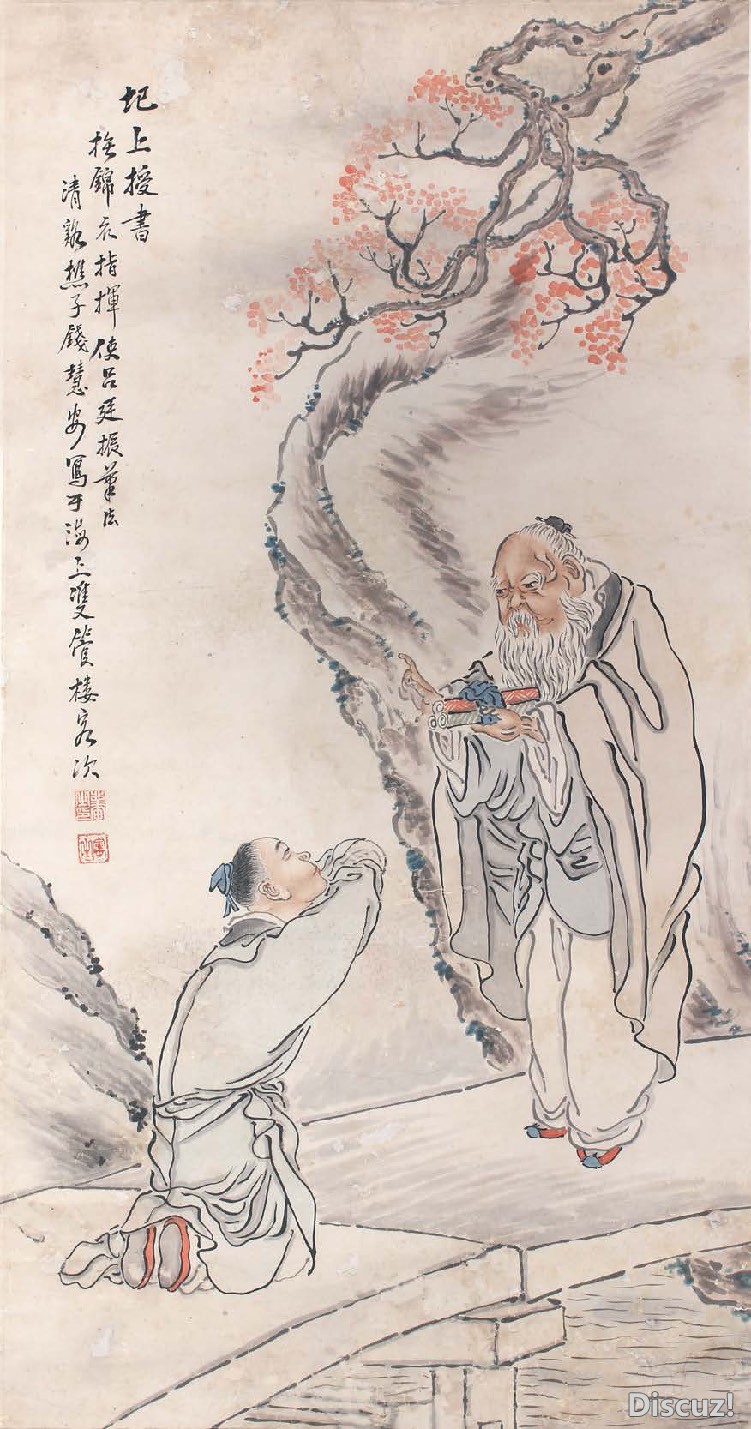 圯上授書
撫錦衣指揮使呂廷振筆法
清谿樵子錢慧安寫于海上雙管樓客次
Discuz!